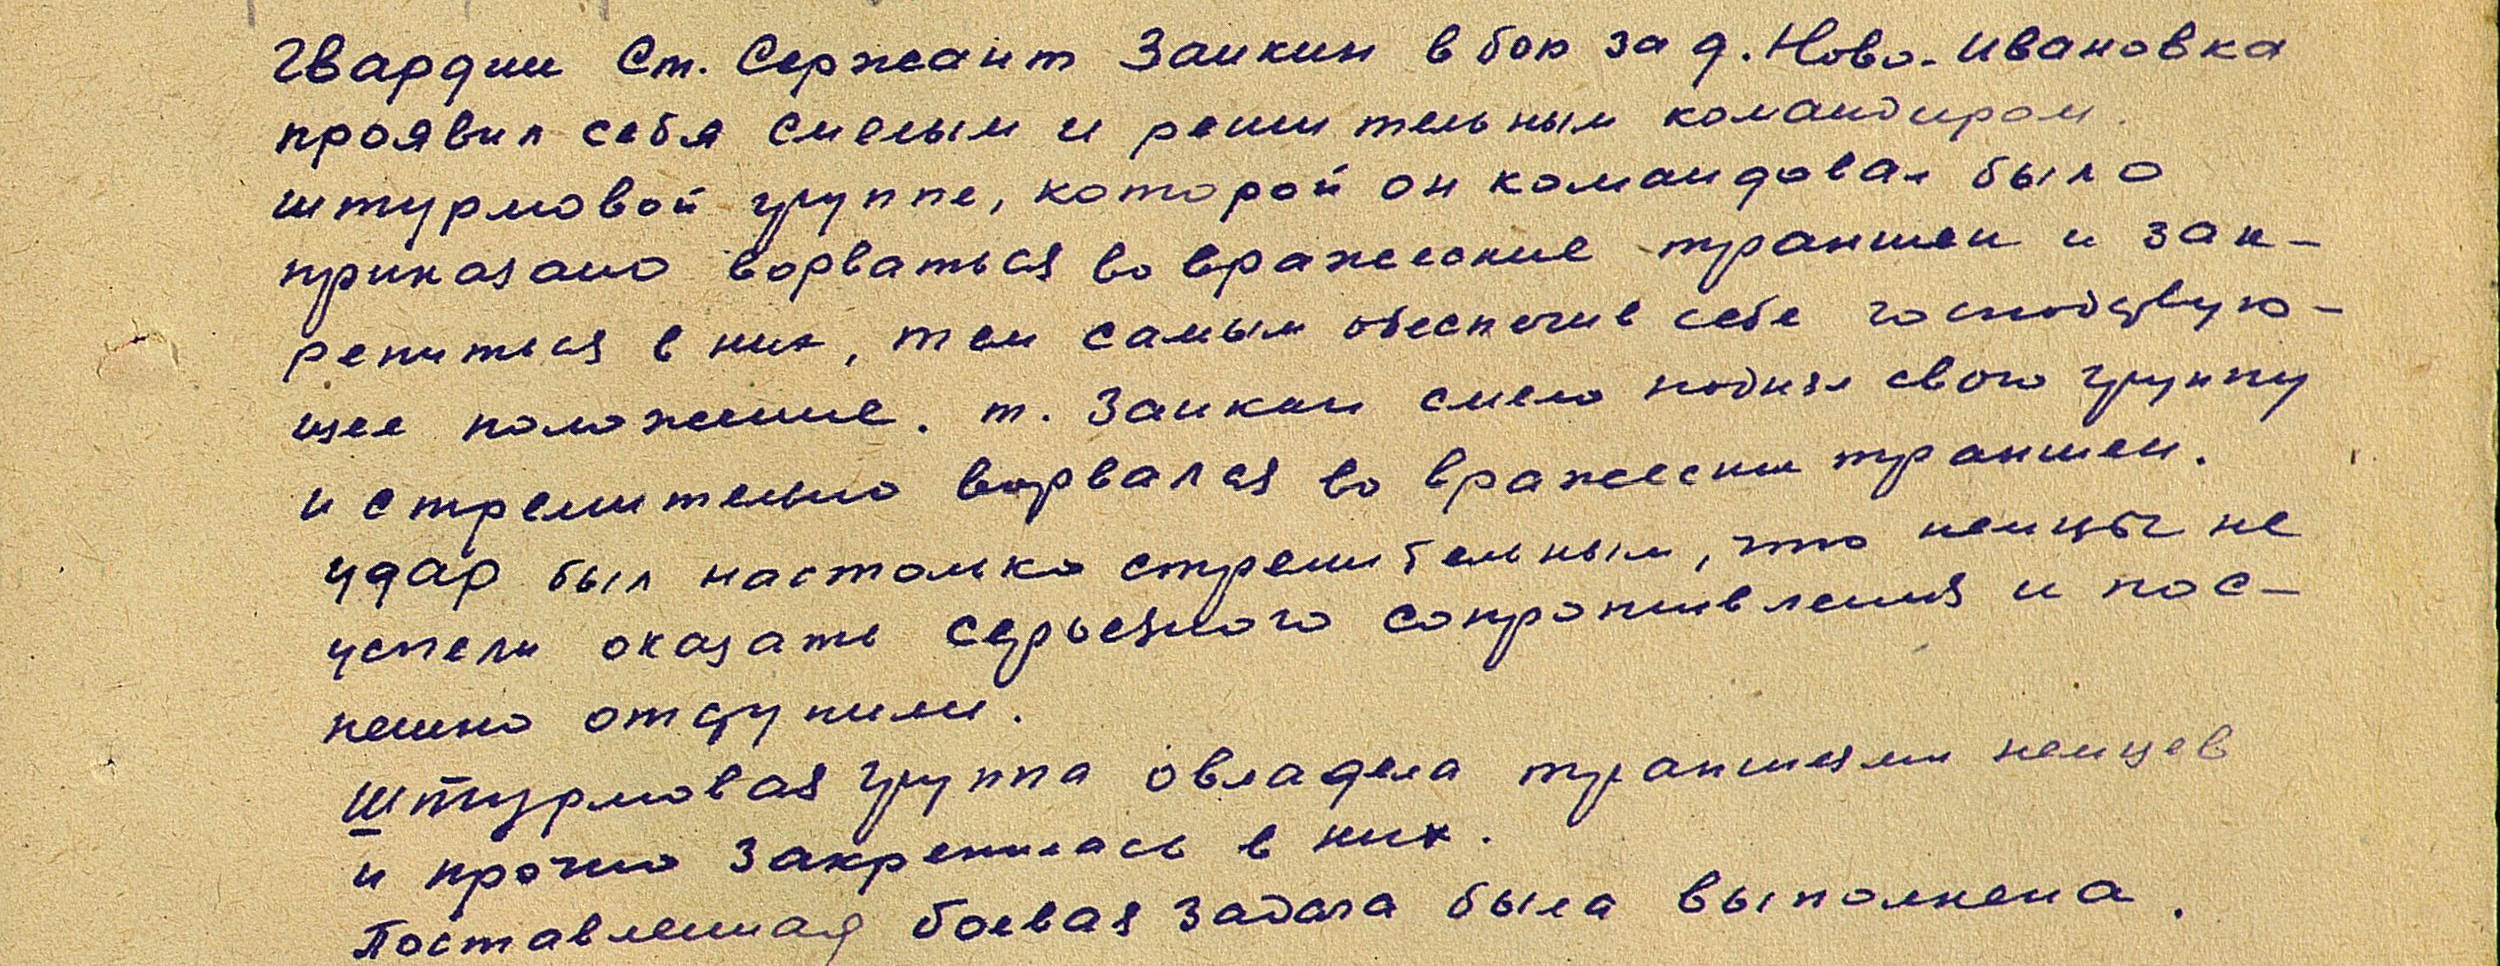 Гвардии Ст. Сержант Заикин в бою за д. Ново-Ивановка
проявил себя смелым и решительным командиром.
штурмовой группе, которой он командовал было
приказано ворваться во вражеские траншеи и зак-
репиться в них, тем самым обеспечив себе господствую-
щее положение. т. Заикин смело поднял свою группу
и стремительно ворвался во вражеские траншеи.
удар был настолько стремительным, что немцы не
успели оказать серьезного сопротивления и пос-
пешно отступили.
Штурмовая группа овладела траншеями немцев
и прочно закрепилась в них.
Поставленная боевая задача была выполнена.